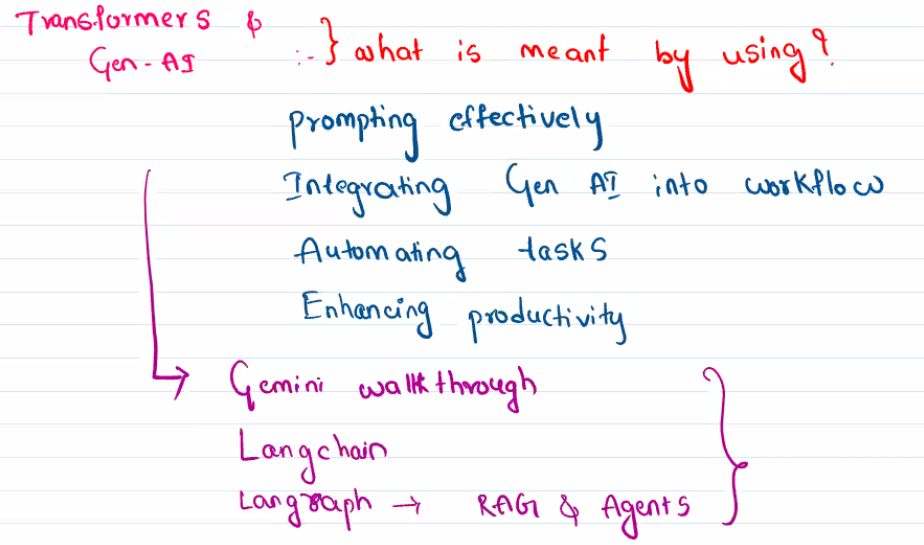 Transformers &
Gen-AI :- } what is meant by using?
prompting effectively
Integrating Gen AI into workflow
Automating tasks
Enhancing productivity
Gemini walkthrough
Langchain
Langraph → RAG & Agents